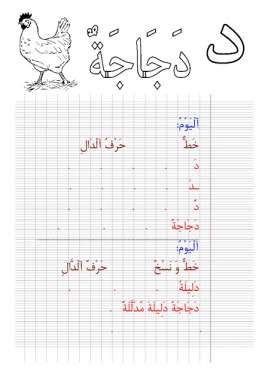 د دَجَاجَةٌ
اَلْيَوْمُ:
خَطٌّ حَرْفُ اَلدَّالِ
دَ . . . .
ـدُ . . . .
دْ . . . .
دَجَاجَةٌ . . .
اَلْيَوْمُ:
خَطٌّ وَ نَسْخٌ حَرْفُ اَلدَّالِ
دَلِيلَةُ . . .
دَجَاجَةُ دَلِيلَةَ مُدَلَّلَةٌ .